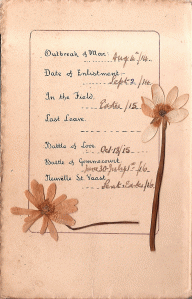 Outbreak of War:- Aug 4th/14.
Date of Enlistment:- Sept 2/14.
In the Field. Easter/15.
Last Leave.
Battle of Loos. Oct 13/15.
Battle of Gommecourt. June 30-July 1st/16.
Neuville St. Vaast.